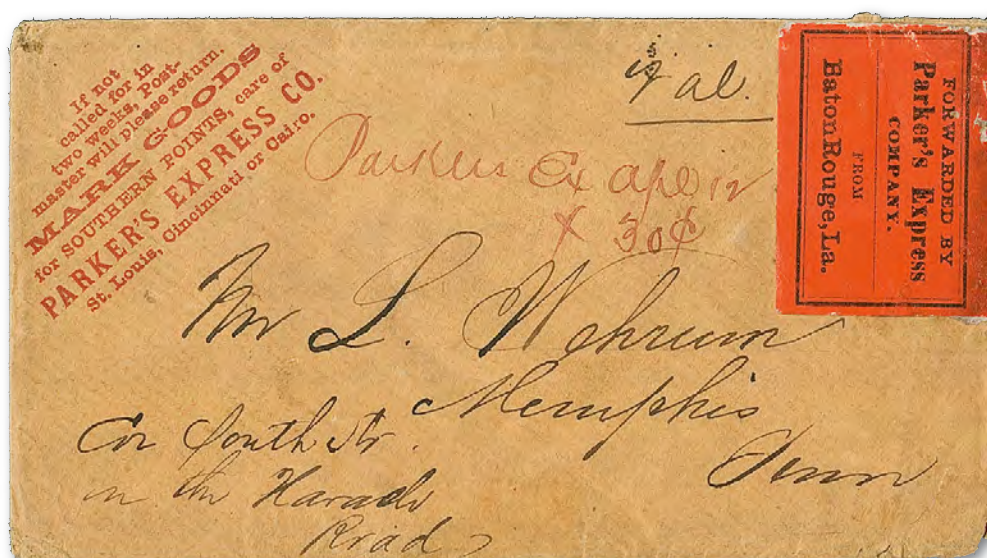 If not
called for in
two weeks, Post-
master will please return.
MARK GOODS
for SOUTHERN POINTS, care of
PARKER'S EXPRESS CO.
St. Louis, Cincinnati or Cairo.
val.
Parkers Ex
30¢
FORWARDED BY
Parker's Express
COMPANY.
FROM
Baton Rouge, La.
Mr L. Wehrum
Memphis
Tenn
Cor South Str.
on the
Road